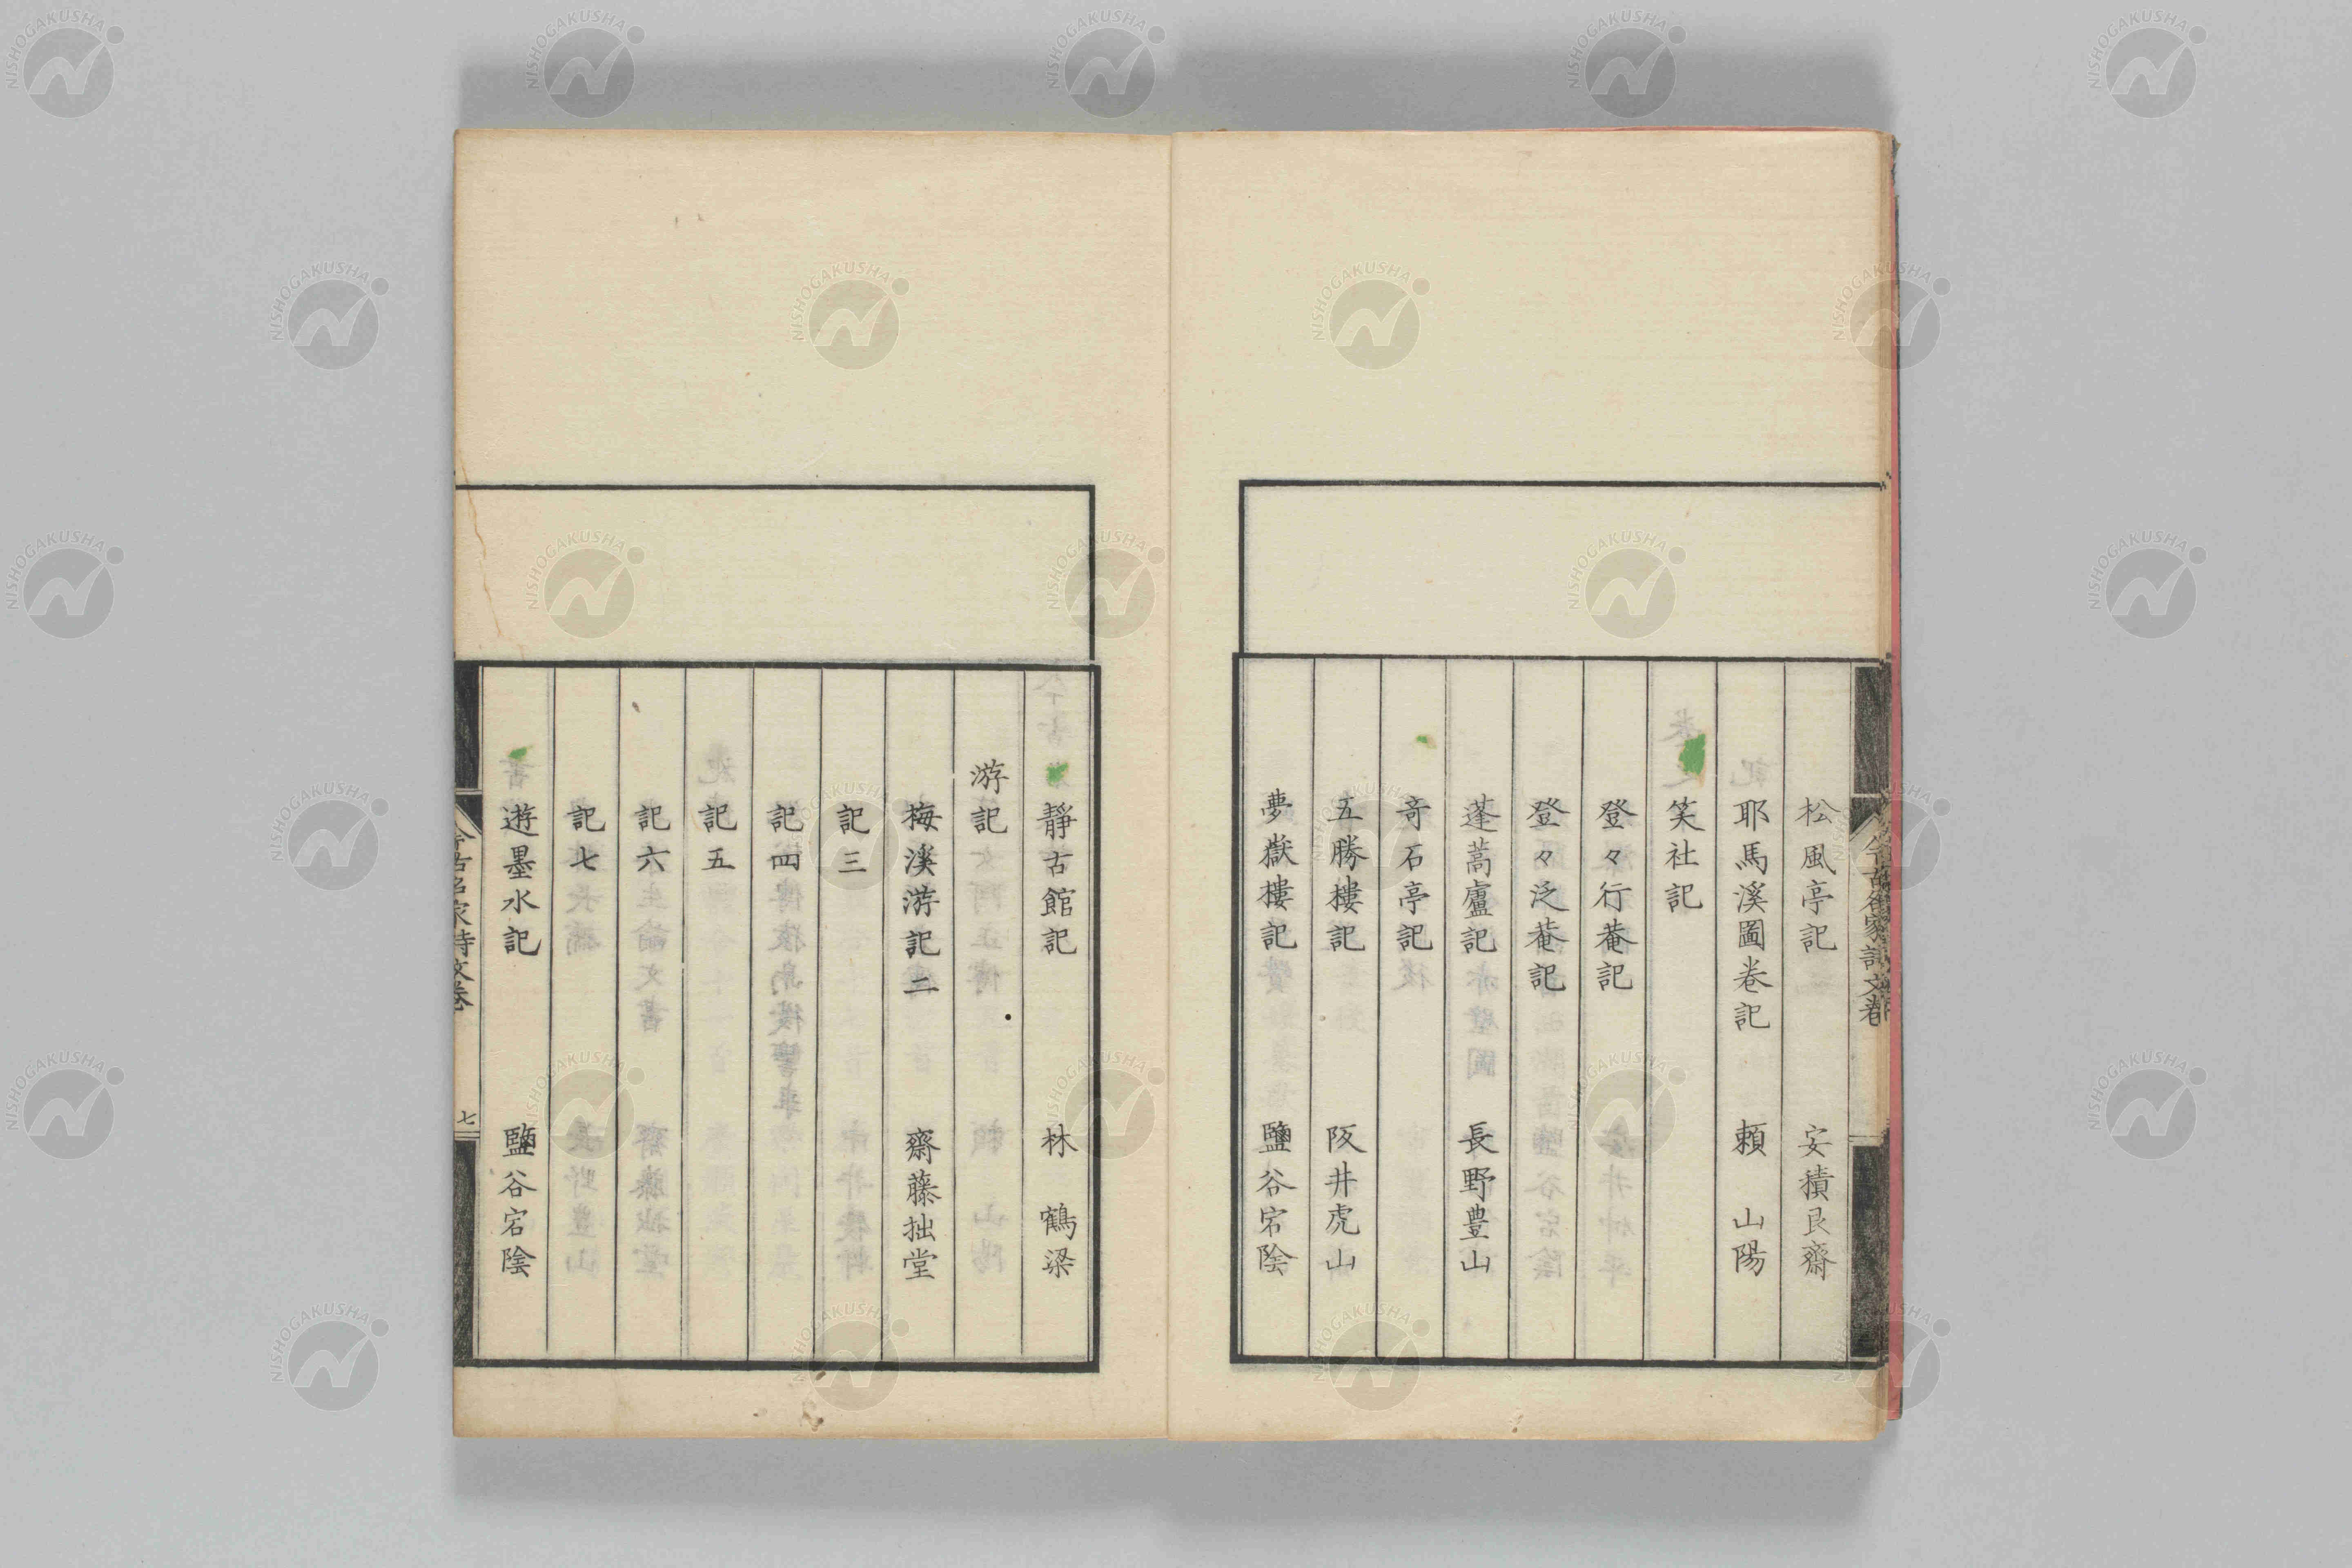 松風亭記　安積艮齋
耶馬溪圖卷記　頼　山陽
笑社記
登々行菴記
登々泛菴記
蓬蒿廬記　長野豊山
竒石亭記
五勝樓記　阪井虎山
夢嶽樓記　鹽谷宕陰
靜古館記　林　鶴梁
游記
梅溪游記二　齋藤拙堂
記三
記四
記五
記六
記七
遊墨水記　鹽谷宕陰
今古名家詩文卷
七
NISHOGAKUSHA